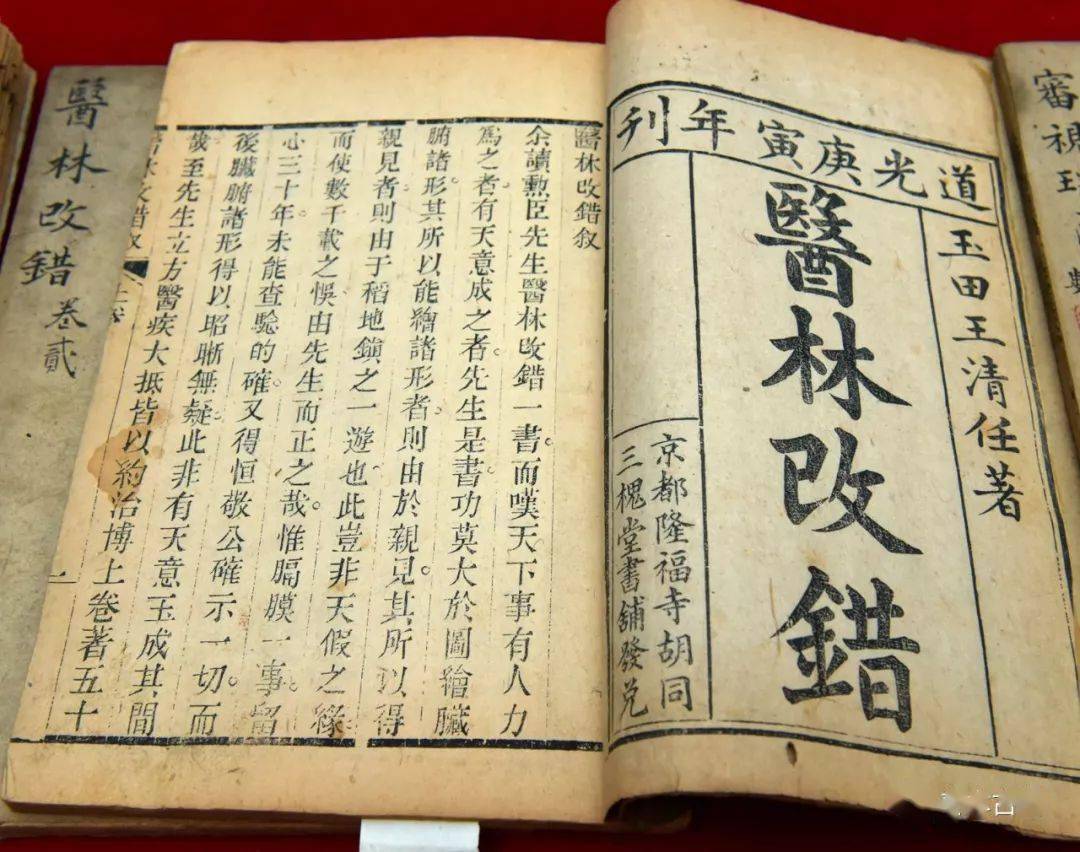 審
道光庚寅年刊
玉田王清任著
醫林改錯
京都隆福寺胡同
三槐堂書舖發兌
醫林改錯叙
余讀勲臣先生醫林改錯一書。而嘆天下事有人力
為之者。有天意成之者。先生是書。功莫大於圖繪臟
腑諸形。其所以能繪諸形者。則由於親見。其所以得
親見者。則由于稻地鎭之一遊也。此豈非天假之緣
而使數千載之悞。由先生而正之哉。惟膈膜一事。留
心三十年。未能查驗的確。又得恒敬公確示一切。而
後臟腑諸形。得以昭晰無疑。此非有天意玉成其間
哉。至先生立方醫疾。大抵皆以約治博。上卷著五十
醫林改錯叙
一
醫林改錯 卷貳